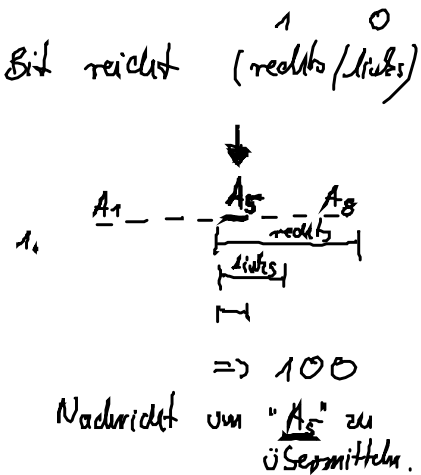 1 0
Bit reicht (rechts/links)
A1 A5 A8
1.
rechts
links
=> 100
Nachricht um "A5" zu
übermitteln.